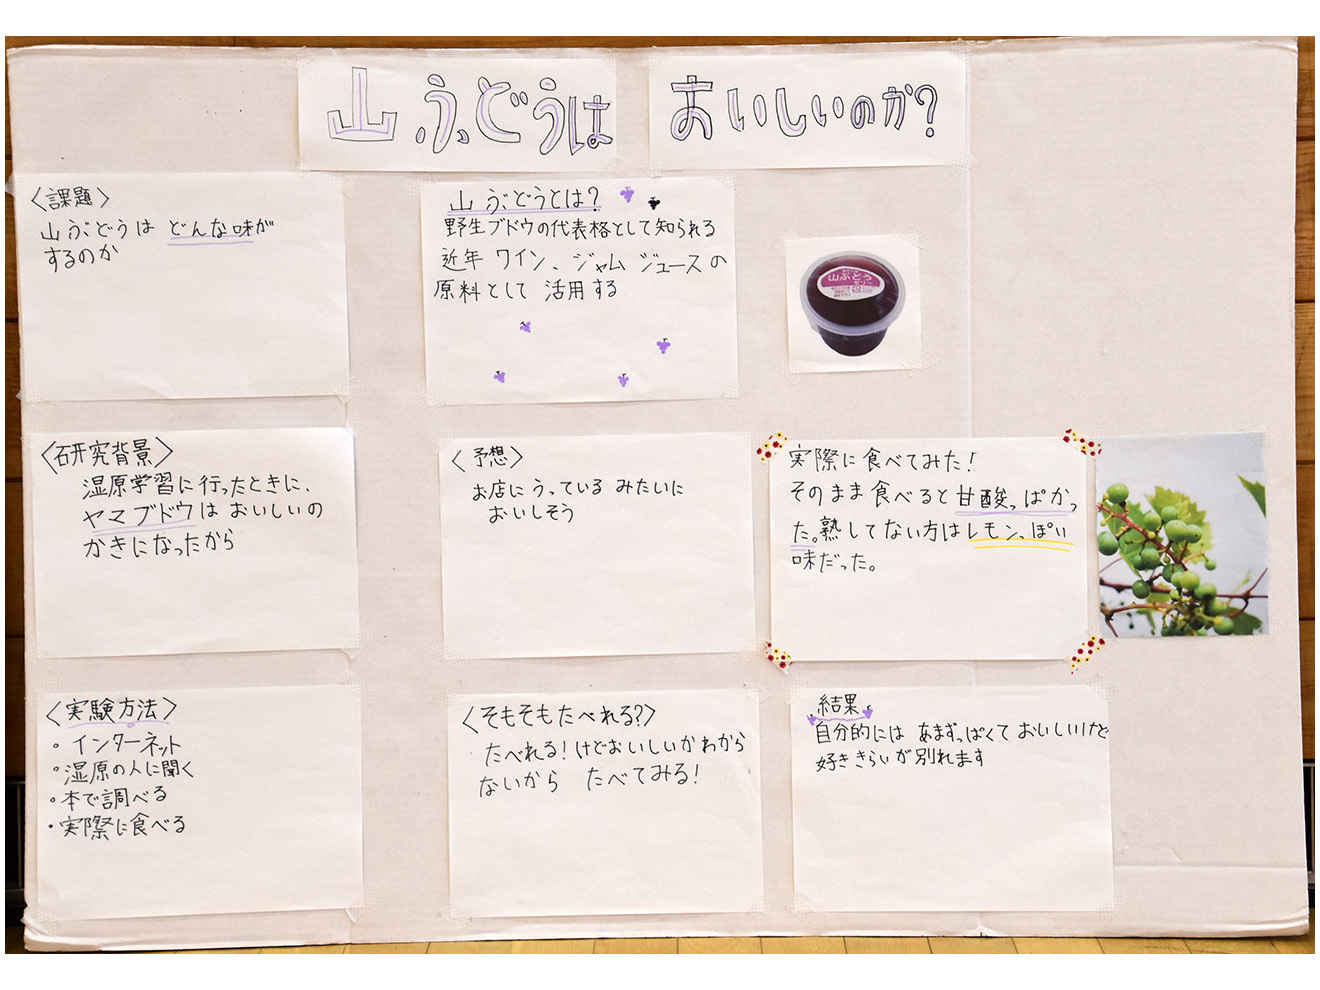 山ぶどうは おいしいのか?
〈課題〉
山ぶどうは どんな味が
するのか
山ぶどうとは?
野生ブドウの代表格として知られる
近年 ワイン、ジャム ジュースの
原料として 活用する
山ぶどう
ゼリー
〈研究背景〉
湿原学習に行ったときに、
ヤマブドウは おいしいの
かきになったから
〈予想〉
お店にうっている みたいに
おいしそう
実際に食べてみた!
そのまま食べると甘酸っぱかっ
た。熟してない方はレモンっぽい
味だった。
〈実験方法〉
。インターネット
。湿原の人に聞く
。本で調べる
・実際に食べる
〈そもそもたべれる?〉
たべれる!けどおいしいかわから
ないから たべてみる!
結果
自分的には あまずっぱくて おいしいけど
好ききらいが別れます